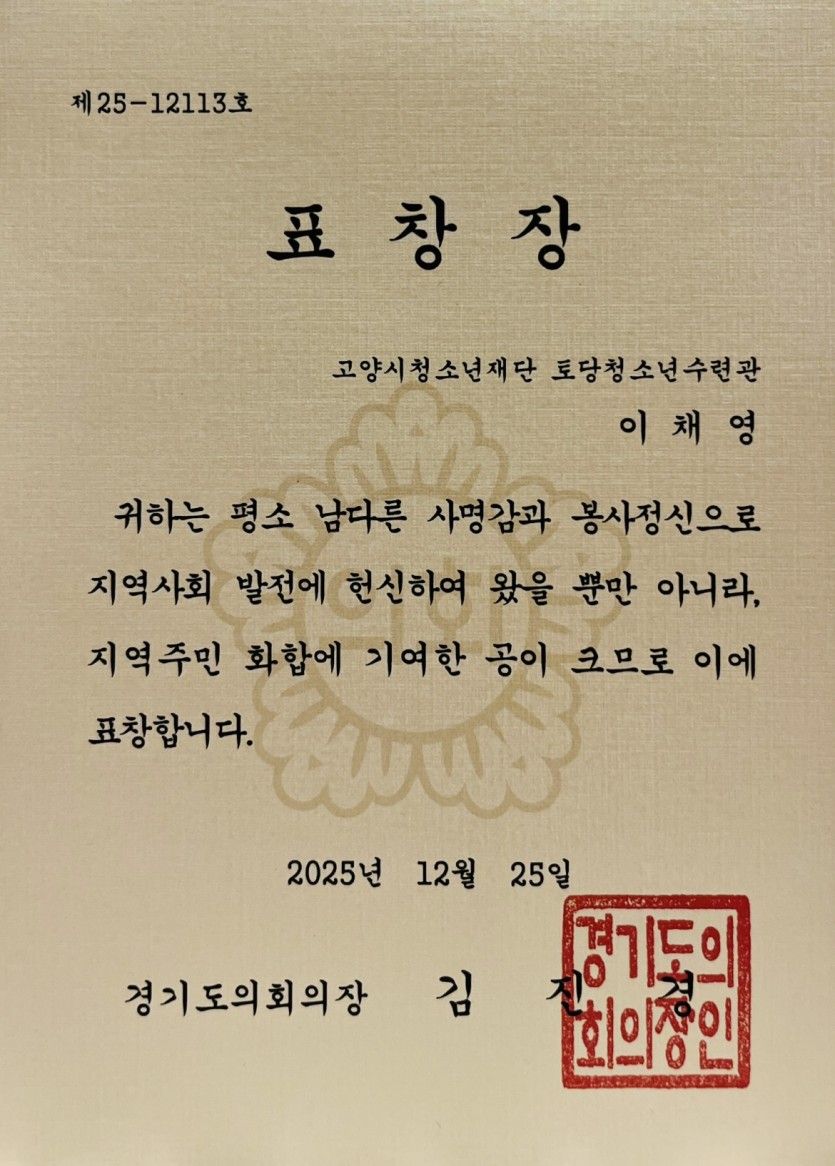 제25-12113호
표 창 장
고양시청소년재단 토당청소년수련관
이 채 영
귀하는 평소 남다른 사명감과 봉사정신으로
지역사회 발전에 헌신하여 왔을 뿐만 아니라,
지역주민 화합에 기여한 공이 크므로 이에
표창합니다.
의회
2025년 12월 25일
경기도의회의장 김 진 경
경기도의
회의장인